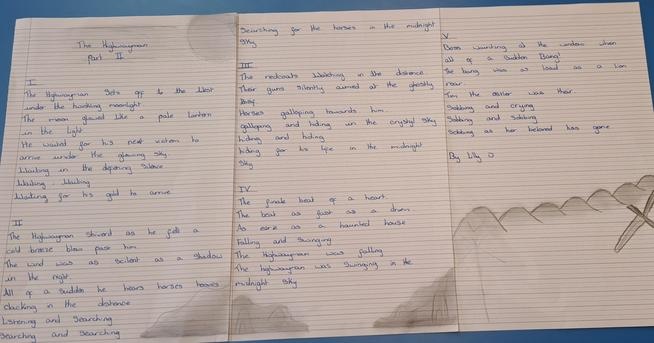 The Highwayman
part II
I
The Highwayman Sets off to the West
under the howling moonlight
The moon glowed like a pale lantern
in the light
He waited for his next victom to
arrive under the glowing sky.
Waiting in the depening Silence
Waiting, Waiting
Waiting for his gold to arrive
II
The Highwayman Shiverd as he felt a
cold breeze blow past him.
The wind was as Scilent as a Shadow
in the night.
All of a Sudden he hears horses hooves
clacking in the distence
Listening and Searching
Searching and Searching
Searching for the horses in the midnight
Sky
III
The redcoats Watching in the distence
Their guns Silently aimed at the ghostly
Horses galloping towards him.
galloping and hiding in the crystal Sky
hiding and hiding
hiding for his life in the midnight
Sky
IV
The finale beat of a heart.
The beat as fast as a drum
As earie as a haunted house
Falling and Swinging
The Highwayman was falling
The highwayman was Swinging in the
midnight Sky
V
Bess waiting at the window when
all of a Sudden Bang!
The bang was as loud as a lion
roar.
Tim the ostler was their.
Sobbing and crying
Sobbing and Sobbing
Sobbing as her beloved has gone
By Lily O